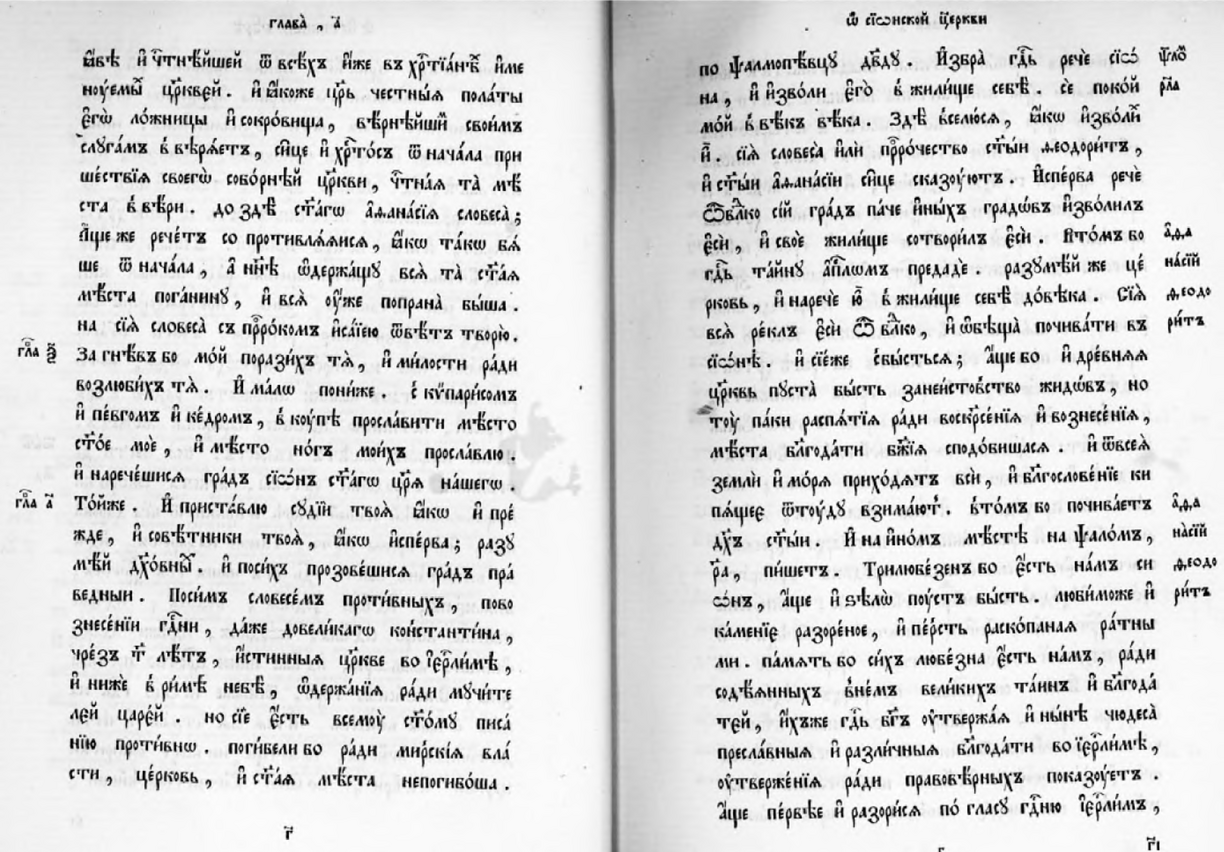 глава̀ , а҃
ꙗ҆́вѣ и҆ чⷭ҇тнѣ́йшей ѿ всѣ́хъ и҆̀же въ хрⷭ҇тїа́нѣⷯ и҆ме
нꙋ́емыⷯ цр҃кве́й . и҆ ꙗ҆́коже цр҃ь честны́ѧ пола́ты
є҆гѡ̀ ло́жницы и҆ сокро́вища , вѣ́рнѣйшиⷨ свои́мъ
слꙋга́мъ в вѣрѧ́етъ , си́це и҆ хрⷭ҇то́съ ѿ нача́ла при
ше́ствїѧ своегѡ̀ собо́рнѣй цр҃кви , чⷭ҇тна́ѧ та̀ мѣ
ста̀ в вѣ́ри . до здѣ̀ ст҃а́гѡ а҆ѳана́сїѧ словеса̀ ;
а҆́ще же рече́тъ со противлѧ́ѧисѧ , ꙗ҆́кѡ та́кѡ бѧ́
ше ѿ нача́ла , а҆ нн҃ѣ ѡ҆держа́щꙋ всѧ̀ та̀ ст҃а́ѧ
мѣ́ста пога́нинꙋ , и҆ всѧ̀ ᲂу҆́же попрана̀ бы́ша .
на сїѧ̀ словеса̀ съ прⷪ҇ро́комъ и҆са́їею ѿвѣ́тъ творю̀ .
гл҃а ѯ҃
За гнѣ́въ бо мо́й порази́хъ тѧ̀ , и҆ ми́лости ра́ди
возлюби́хъ тѧ̀ . И҆ ма́лѡ пони́же . с̾ кѷпари́сомъ
и҆ пе́вгомъ и҆ ке́дромъ , в̾ кꙋ́пѣ просла́вити мѣ́сто
ст҃о́е моѐ , и҆ мѣ́сто но́гъ мои́хъ просла́влю .
и҆ нарече́шисѧ гра́дъ сїѡ́нъ ст҃а́гѡ цр҃ѧ̀ на́шегѡ .
гл҃а а҃
То́йже . И҆ приста́влю сꙋдїи̑ твоѧ̀ ꙗ҆́кѡ и҆ пре́
жде , и҆ совѣ́тники твоѧ̀ , ꙗ҆́кѡ и҆спе́рва ; разꙋ
мѣ́й дх҃о́вныⷯ . и҆ поси́хъ прозове́шисѧ гра́дъ пра́
ведныи . Поси́мъ словесе́мъ проти́вныхъ , пово
знесе́нїи гдⷭ҇ни , да́же довели́кагѡ ко́нстантина ,
чре́зъ т҃ лѣ́тъ , и҆́стинныѧ цр҃кве во і҆ерⷭ҇ли́мѣ ,
и҆ нижѐ в̾ ри́мѣ небѣ̀ , ѡ҆держа́нїѧ ра́ди мꙋчи́те
ле́й царе́й . но сїѐ є҆́сть всемꙋ̀ ст҃о́мꙋ писа́
нїю проти́внѡ . поги́бели бо ра́ди мирскі́ѧ вла́
сти , це́рковь , и҆ ст҃а́ѧ мѣ́ста непогибо́ша .
г҃
Ѡ҆ сїѡ́нской цр҃кви
по ѱалмопѣ́вцꙋ дв҃дꙋ . И҆збра̀ гдⷭ҇ь речѐ сїѡ́
на , и҆ и҆зво́ли є҆го̀ в̾ жили́ще себѣ̀ . сѐ поко́й
ѱло́ⷨ
рл҃а
мо́й в̾ вѣ́къ вѣ́ка . Здѣ̀ вселю́сѧ , ꙗ҆́кѡ и҆зво́лиⷯ
и҆̀ . сїѧ̀ словеса̀ и҆лѝ прⷪ҇ро́чество ст҃ы́и ѳеодори́тъ ,
и҆ ст҃ы́и а҆ѳана́сїи си́це сказꙋ́ютъ . И҆спе́рва речѐ
ѽ влⷣко сі́й гра́дъ па́че и҆ны́хъ градѡ́въ и҆зво́лилъ
є҆сѝ , и҆ своѐ жили́ще сотвори́лъ є҆сѝ . Вто́мъ бо
гдⷭ҇ь та́йнꙋ а҆пⷭ҇лѡмъ предадѐ . разꙋмѣ́й же це́
рковь , и҆ наречѐ ю҆̀ в̾ жили́ще себѣ̀ до́вѣка . Сїѧ̀
а҆́ѳа
на́сїй
ѳеодо
ри́тъ
всѧ̀ ре́клъ є҆сѝ ѽ влⷣко , и҆ ѡ҆бѣща̀ почива́ти въ
сїѡ́нѣ . и҆ сїе́же сбы́стьсѧ ; а҆́ще бо и҆ дре́внѧѧ
цр҃квь пꙋста̀ бы́сть занеи́стовство жидѡ́въ , но
тꙋ̀ па́ки распѧ́тїѧ ра́ди воскрⷭ҇е́нїѧ и҆ вознесе́нїѧ ,
мѣ́ста блг҃ода́ти бж҃їѧ сподо́бишасѧ . и҆ ѿвсеѧ̀
землѝ и҆ мо́рѧ прихо́дѧтъ всѝ , и҆ блⷭ҇гослове́нїе ки
пѧ́щее ѿтꙋ́дꙋ взима́ютⸯ . в̾то́мъ бо почива́етъ
дх҃ъ ст҃ы́и . И҆ на и҆но́мъ мѣ́стѣ на ѱало́мъ ,
р҃а , пи́шетъ . Трилюбе́зенъ бо є҆́сть на́мъ си
ѡ́нъ , а҆́ще и҆ ѕѣ́лѡ пꙋ́стъ бы́сть . люби́може и҆
а҆́ѳа
на́сїй
ѳеодо
ри́тъ
ка́менїе разоре́ное , и҆ пе́рсть раско́панаѧ ра́тны
ми . па́мѧть бо си́хъ любе́зна є҆́сть на́мъ , ра́ди
содѣ́ѧнныхъ вне́мъ вели́кихъ та́инъ и҆ блг҃ода́
те́й , и҆́хъже гдⷭ҇ь бг҃ъ ᲂу҆твержа́ѧ и҆ ны́нѣ чюдеса̀
пресла́вныѧ и҆ разли́чныѧ блг҃ода́ти во і҆ерⷭ҇ли́мѣ ,
ᲂу҆твержде́нїѧ ра́ди правовѣ́рныхъ показꙋ́етъ .
а҆́ще пе́рвѣе и҆ разори́сѧ по́ гласꙋ гдⷭ҇ню і҆ерⷭ҇ли́мъ ,
г҃і